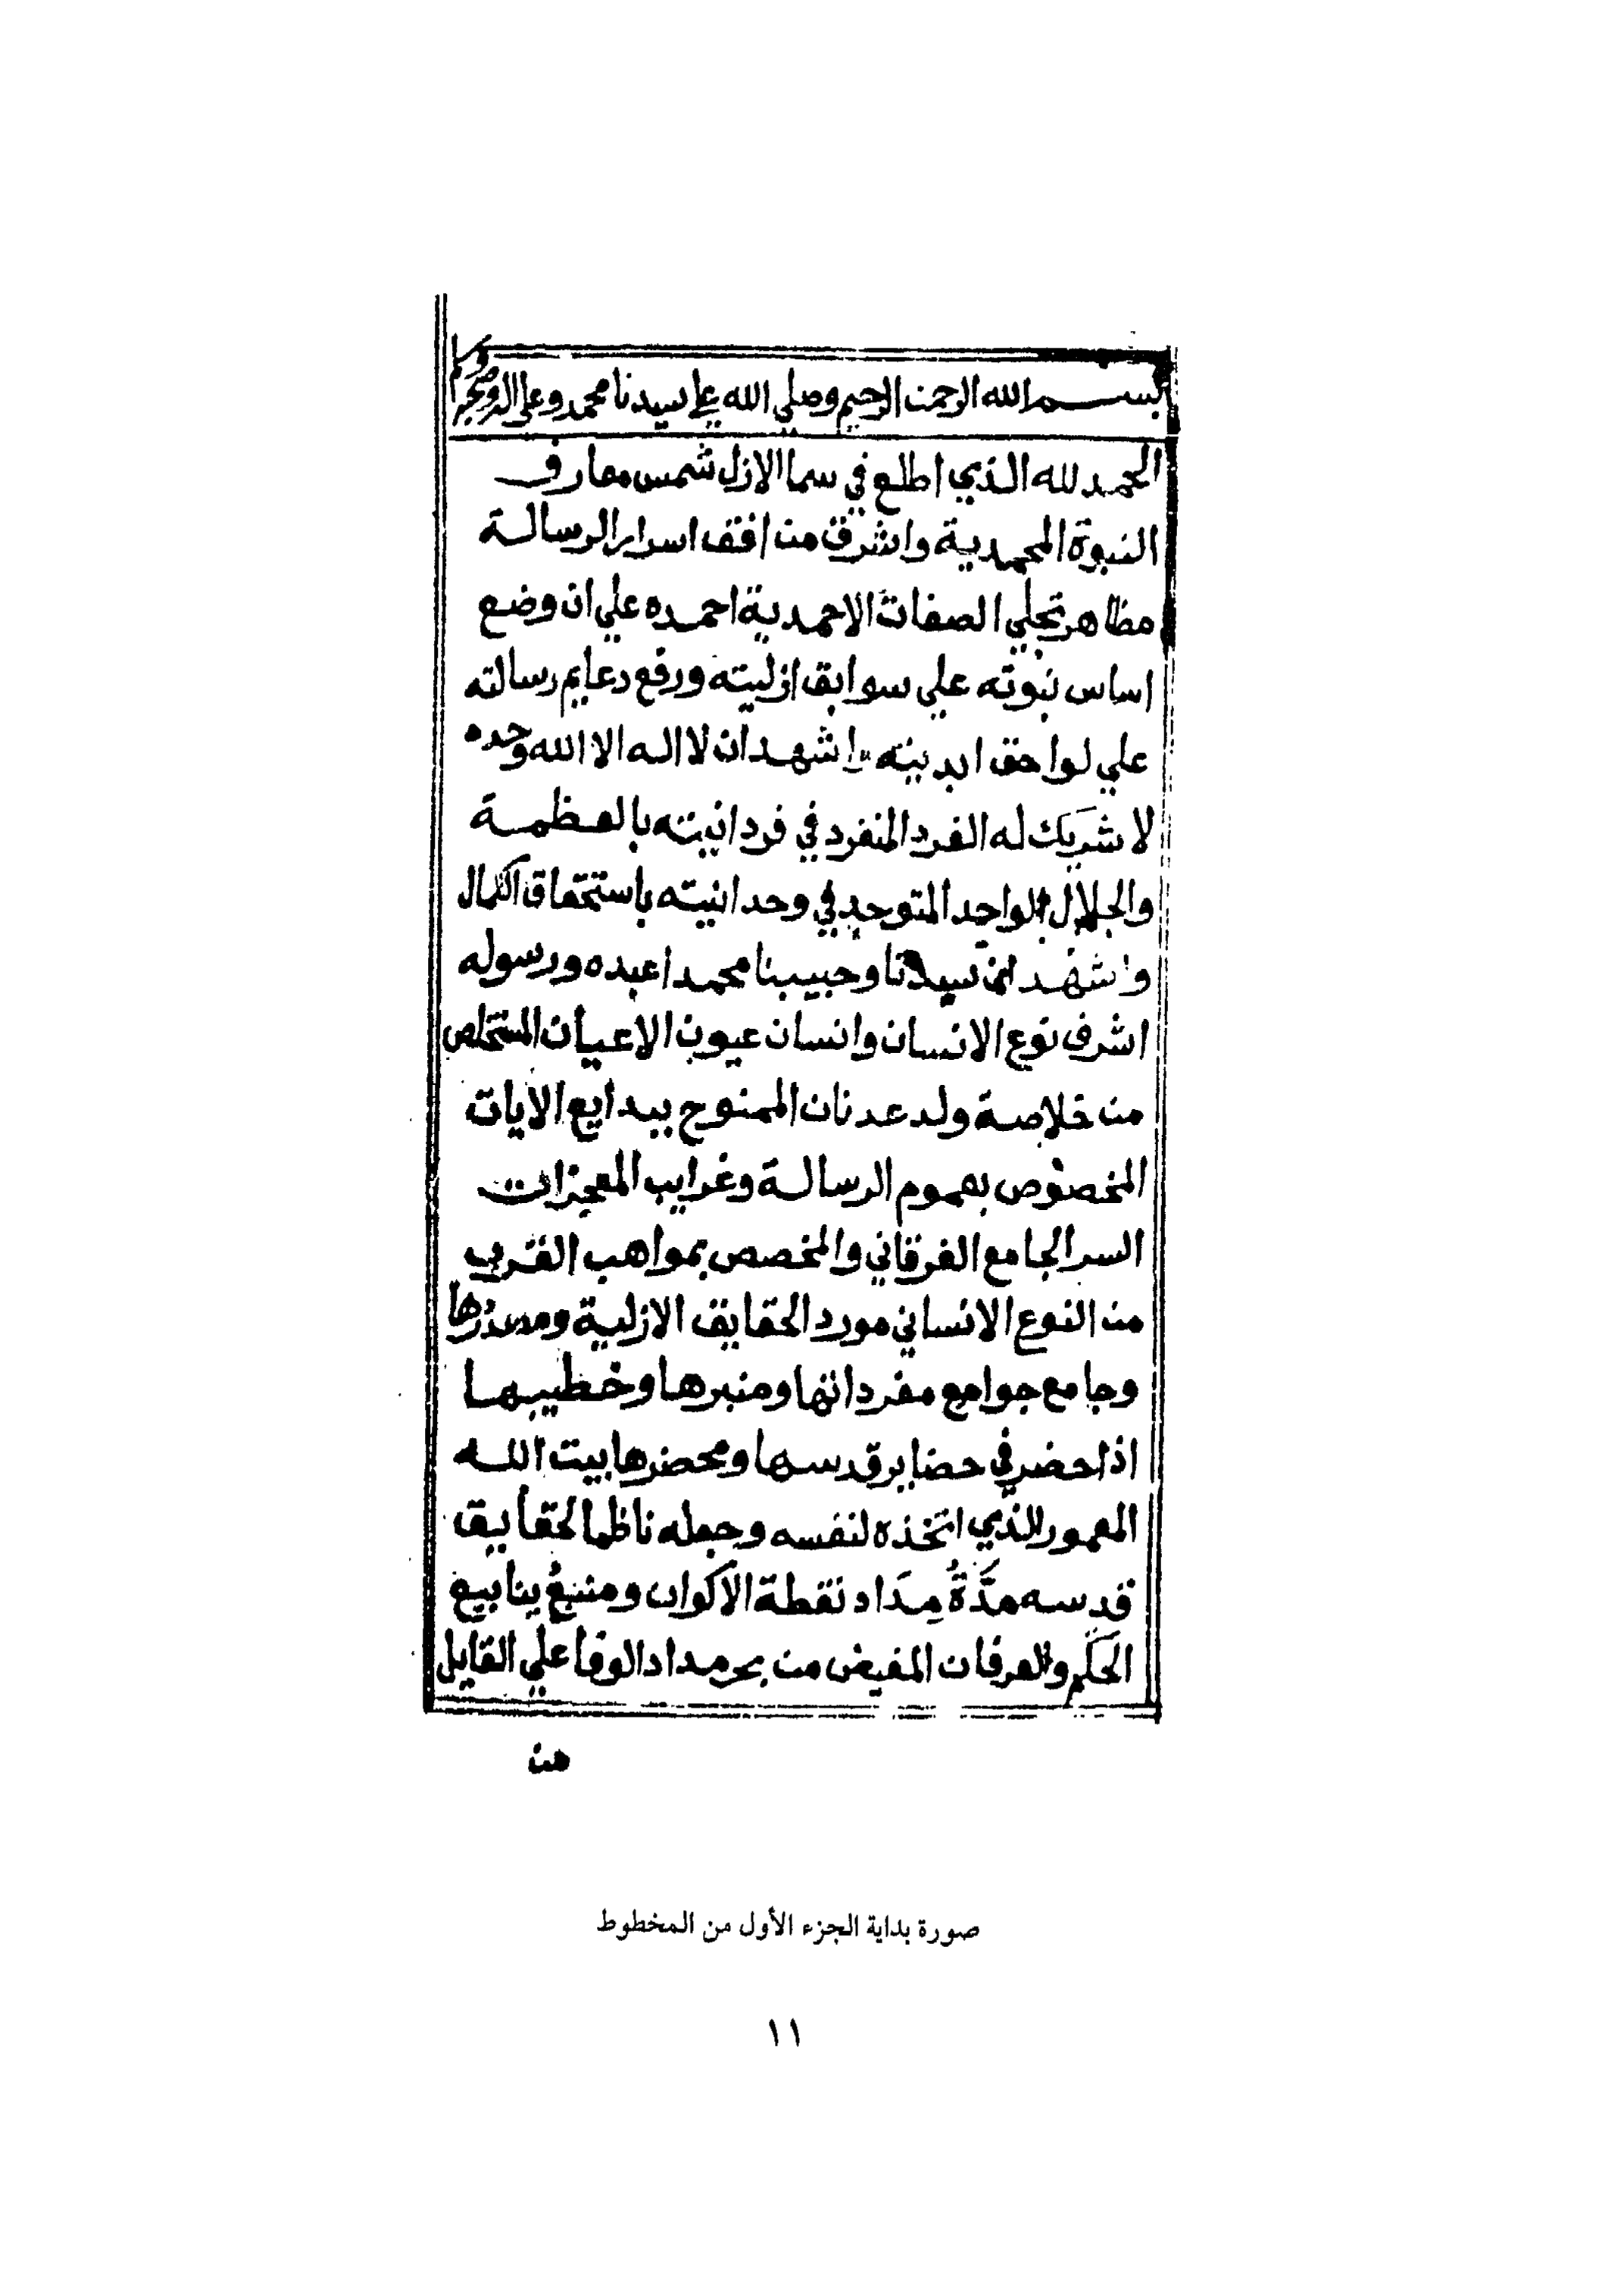 بسم الله الرحمن الرحيم وصلي الله علي سيدنا محمد وعلي اله وصحبه وسلم
الحمد لله الذي اطلع في سما الازل شمس معارف
النبوة المحمدية واشرق من افق اسرار الرسالة
مظاهر تجلي الصفات الاحمدية احمده علي ان وضع
اساس نبوته علي سوابق ازليته ورفع دعايم رسالته
علي لواحق ابديته واشهد ان لا اله الا الله وحده
لا شريك له الفرد المنفرد في فردانيته بالعظمة
والجلال الواحد المتوحد في وحدانيته باستحقاق الكمال
واشهد ان سيدنا وحبيبنا محمدا عبده ورسوله
اشرف نوع الانسان وانسان عيون الاعيان المستخلص
من خلاصة ولد عدنان الممنوح ببدايع الايات
المخصوص بعموم الرسالة وغرايب المعجزات
السر الجامع الفرقاني والمخصص بمواهب القرب
من النوع الانساني مورد الحقايق الازلية ومصدرها
وجامع جوامع مفرداتها ومنبرها وخطيبها
اذا حضر في حضاير قدسها ومحضرها بيت الله
المعمور الذي اتخذه لنفسه وجعله ناظما لحقايق
قدسه مدَّةُ مِدَاد نقطة الاكوان ومنبعُ ينابيع
الحَكَم والعرفان المفيض من بحر مداد الوفا علي القايل
من
صورة بداية الجزء الأول من المخطوط
١١